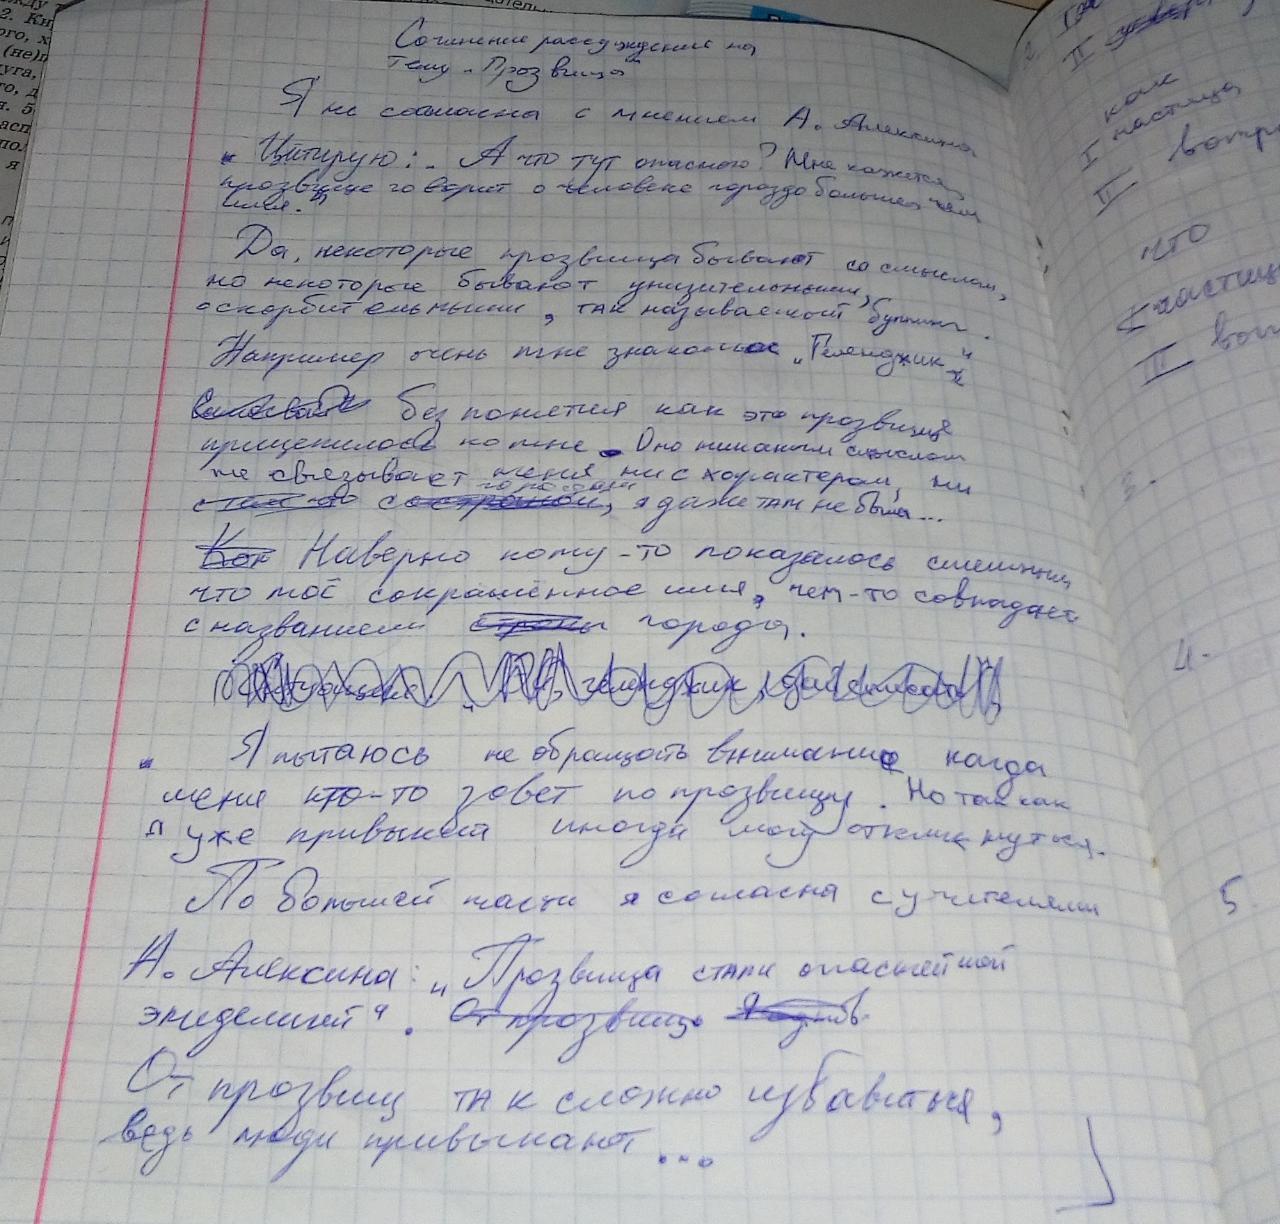 Сочинение рассуждение на
тему „Прозвища"
Я не согласна с мнением А. Алексина
Цитирую: „А что тут опасного? Мне кажется,
прозвище говорит о человеке гораздо больше, чем
имя."
Да, некоторые прозвища бывают со смыслом,
но некоторые бывают унизительными,
оскорбительными, так называемой
Например очень мне знакомое „Геленджик"
Без понятия как это прозвище
прицепилось ко мне. Оно никаким смыслом
не связывает меня ни с характером, ни
с городом, я даже там не была...
Наверно кому-то показалось смешным
что моё сокращённое имя, чем-то совпадает
с названием города.
Я пытаюсь не обращать внимание когда
меня кто-то зовёт по прозвищу. Но так как
я уже привыкла иногда могу откликнуться.
По большей части я согласна с учителями
А. Алексина: „Прозвища стали опаснейшой
эпидемией".
От прозвищ так сложно избавиться,
ведь люди привыкают...
2. Кн
(не)п
II
как
I частица
II вопр
что
I частица
II
3.
4.
5.